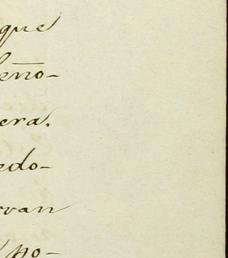 que
eño-
era.
edo-
rvan
po-